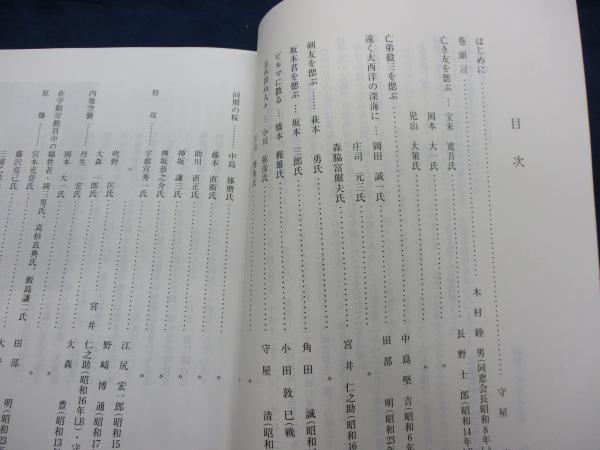 目次
はじめに………守屋
巻頭言………木村睦男(同窓会長昭和8年
亡き友を偲ぶ…宝来寛吾氏………長野士郎(昭和14年
岡本大一氏………〃
児山大策氏………中島堅吉(昭和6年
亡弟毅三を偲ぶ………田部明(昭和23年
遠く大西洋の深海に…岡田誠一氏………〃
庄司元三氏………〃
森脇富爾夫氏………宮井仁之助(昭和16年
剣友を偲ぶ……萩本勇氏………角田誠(昭和
坂本君を偲ぶ…坂本三郎氏………小田敦巳(戦
ビルマに散る…橋本梶雄氏………〃
忘れ得ぬ人々…小川弥彦氏………守屋清(昭和
同期の桜……中島琢磨氏………〃
藤本直衛氏………〃
助川直正氏………〃
神坂謙三氏………〃
神坂恭之介氏………〃
特攻……宇都宮秀一氏………〃
吹野匡氏………江尻宏一郎(昭和15
大森一郎氏………野崎博通(昭和17
内地空襲……丹生宏氏………宮井仁之助(昭和16年LB)・守
岡本大一氏………大森豊(昭和13
在学勤労動員中の犠牲者・岡三男氏、高杉良典氏、飯島謙二氏
原爆……宮本光登氏………田部明(昭和23年
藤沢克己氏………